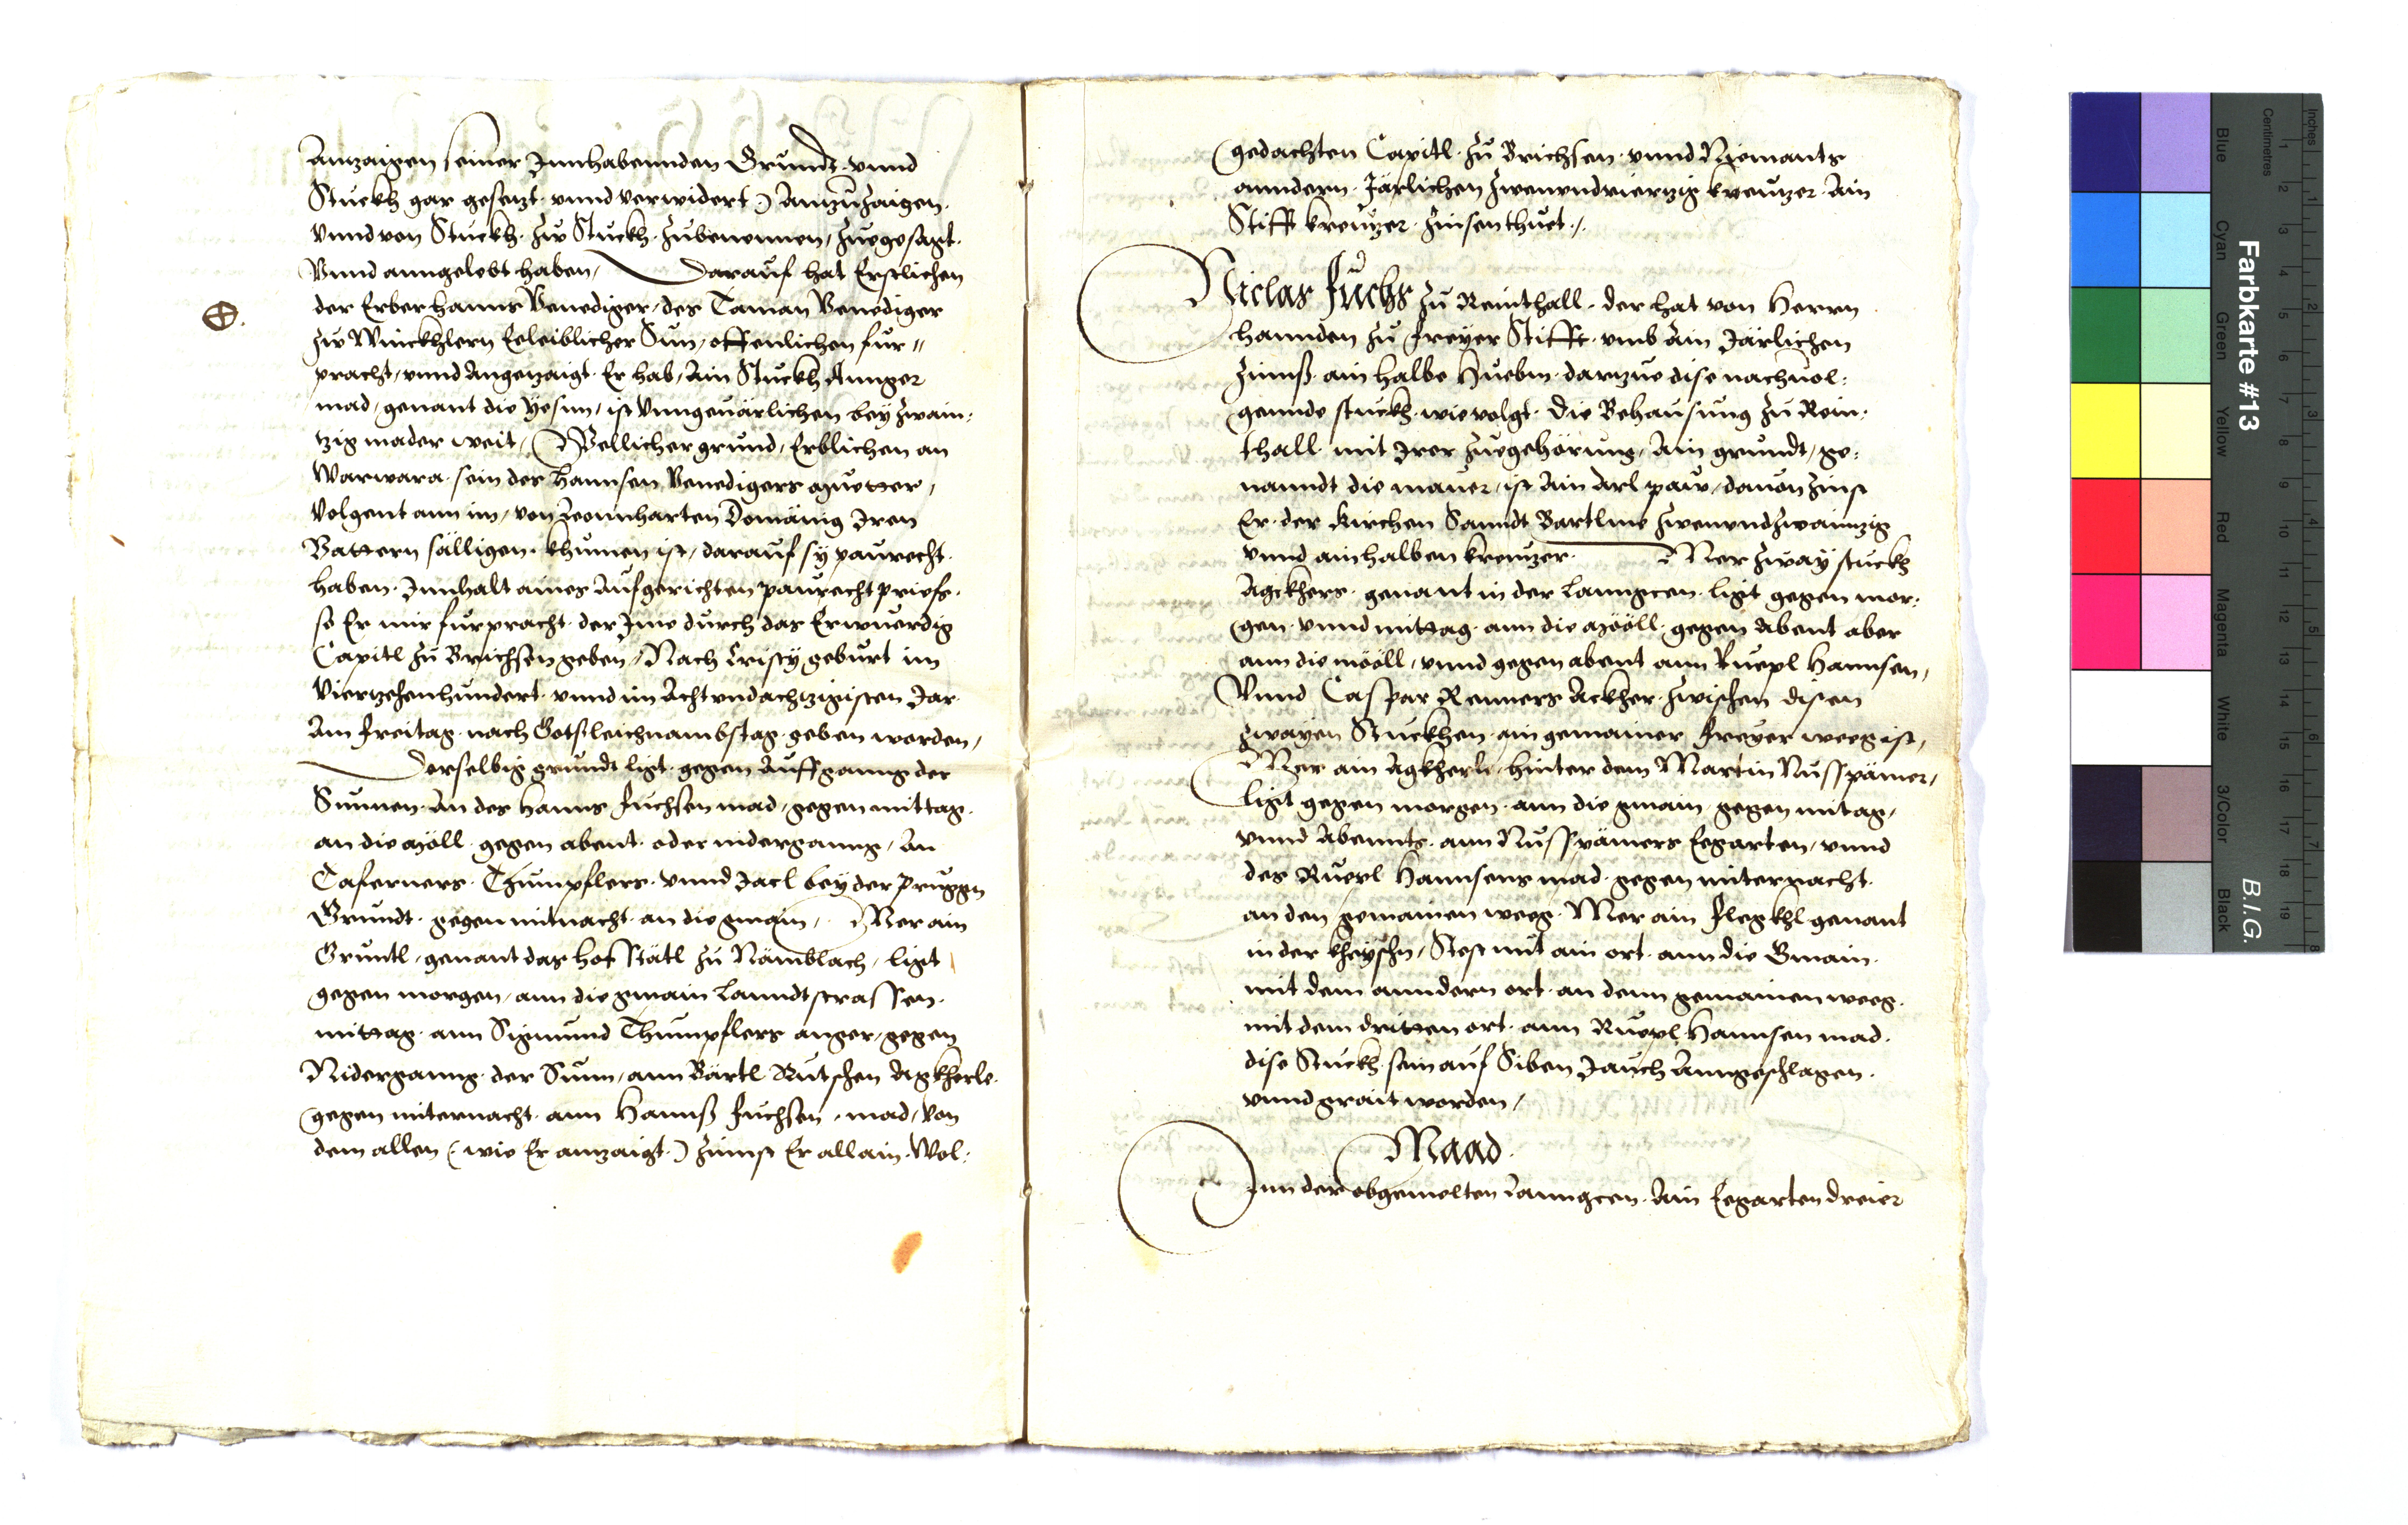 Anzaigen seiner Innhabennden Grundt. vnnd
Stuckh gar gesetzt. vnnd verwidert) Anzuzaigen.
Vnnd von Stuckh. zw Stuckh. zubenennen, zuegesagt.
Vnnd anngelobt haben, Darauf hat Erstlichen
der Erber hanns Venediger, des Taman Venediger
zw Winckhlern Eeleiblicher Sun, offenlichen fur-
pracht, vnnd Angezaigt. Er hab, Ain Stuckh Annger
mad, genant die Yesnn, ist Vnngeuärlichen bey zwain-
tzig mader weit, Wellicher grund, Erblichen an
Warwara. sein des Hannsen Venedigers Muetter,
Volgent ann im, von Leonnharten Domänig Iren
Vattern sälligen. khumen ist, darauf sy paurecht.
haben. Innhalt aines Aufgerichten paurecht priefs.
so Er mir furpracht. der Ime durch das Erwuerdig
Capitl zu Brichsen geben, Nach Cristy geburt im
Viertzehenhundert. vnnd im Acht vndachtzigisten Jar.
Am freitag. nach Gotsleichnambstag. geben worden,
Derselbig grundt ligt. gegen Auffganng der
Sunnen. An des Hanns fuchsen mad, gegen mittag.
an die Möll. gegen abent. oder niderganng, An
Caserners. Thumpflers. vnnd Jacl bey der pruggn
Grundt. gegen mitnacht. an die gmain, Mer ain
Gruntl, genant das hofstätl zu Nämblach, ligt
gegen morgen, ann die gmain Lanndtstrassen.
mittag. ann Sigmund Thumpflers anger, gegen
Niderganng. der Sunn, ann Bärtl Rutschen Agkherle.
gegen miternacht. ann Hannß fuchsen. mad, von
dem allen (wie Er anzaigt.) zinnst Er allain. Wol-
gedachten Capitl. zu Brichsen. vnnd Niemants
anndern. Järlichen zwenvndviertzig kreutzer. Ain
Stifft kreutzer. zinsen thuet./.
Niclas fuchs zu Reinthall. der hat von Herrn
hannden zu freyer Stifft. vmb Ain Järlichen
zinnß. ain halbe Huebm. darzue dise nachuol-
gennde stuckh. wie volgt. Die Behausung zu Rein-
thall. mit Irer zuegehörung, Ain grundt, ge-
nanndt die maur, ist Ain Arl paw, dauon zinst
Er. der Kirchen Sanndt Bartlme zwenvndzwainzig
vnnd ain halben kreutzer. Mer zway stuckh
Agckhers. genant in der Lanngeen. ligt gegen mor-
gen. vnnd mittag. ann die Mööll. gegen Abent aber
ann die mööll, vnnd gegen abent ann Ruepl Hannsen,
Vnnd Caspar Renners Ackher. zwischen disen
zwayen Stuckhen. ain gemainer freyer weeg ist,
Mer ain Agkherle. hinter dem Martin Nusspämer,
ligt gegen morgen. ann die gmain. gegen mitag,
vnnd Abennts. ann Nusspämers Eegarten, vnnd
des Ruepl Hannsens mad. gegen miternacht.
an den gemainen weeg. Mer ain flegkhl genant
in der kheyschn, Stest mit ain ort. ann die Gmain.
mit dem anndern ort. an denn gemainen weeg.
mit dem dritten ort. ann Ruepl Hannsen mad.
dise Stuckh. sein auf Siben Jauch Anngeschlagen.
vnnd grait worden,
Maad.
Inn der obgemelten Lanngeen. Ain Eegarten dreier
Farbkarte #13
B.I.G.
Inches
Centimetres
Blue
Cyan
Green
Yellow
Red
Magenta
White
3/Color
Black